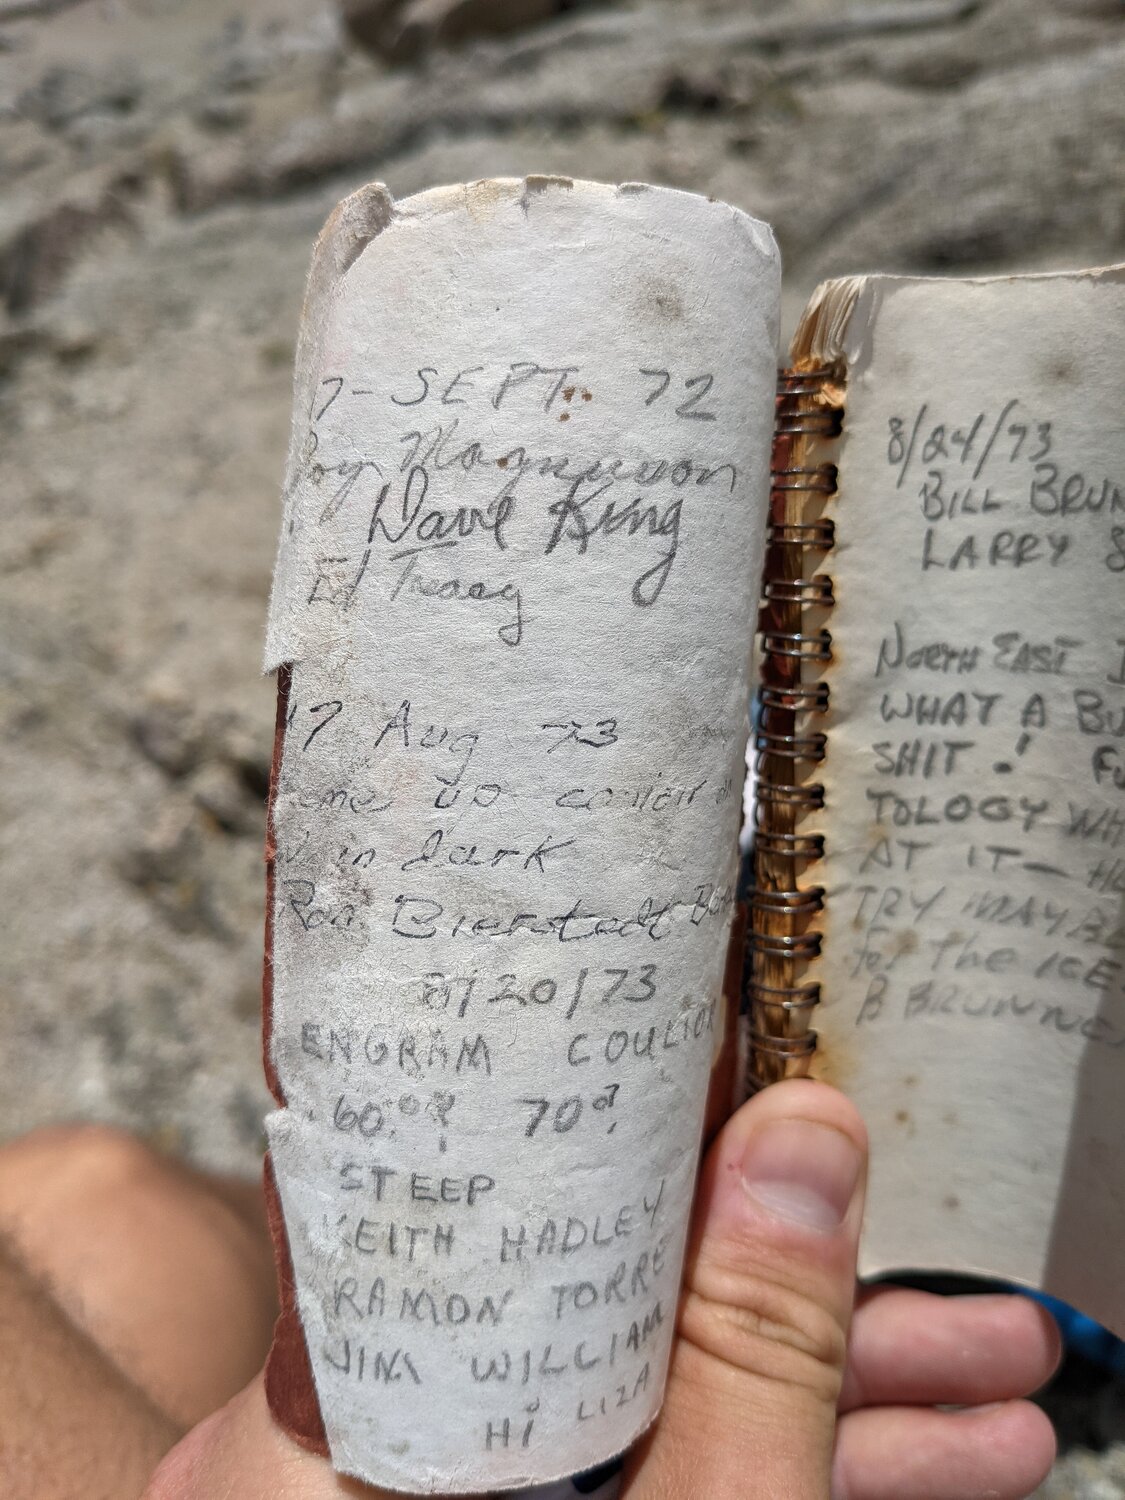 7- SEPT. 72
Roy Magnuson
Dave King
Ed Treacy
17 Aug 73
up
in dark
Ron Bierstedt
8/20/73
ENGRAM COULIOR
60°? 70°?
STEEP
KEITH HADLEY
RAMON TORRE
JIM WILLIAM
Hi LIZA
8/24/73
BILL BRUN
LARRY
NORTH EAST
WHAT A BU
SHIT! FU
TOLOGY WH
AT IT— HO
TRY MAYBE
for the ICE
B BRUNNE